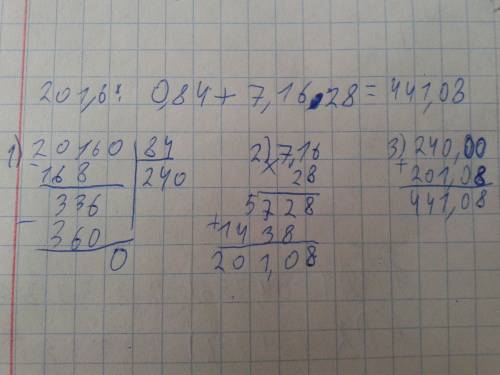 201,6 : 0,84 + 7,16 · 28 = 441,08
1) 20160 | 84
- 168 | 240
336
- 360
0
2) 7,16
× 28
5728
+ 1438
201,08
3) 240,00
+ 201,08
441,08